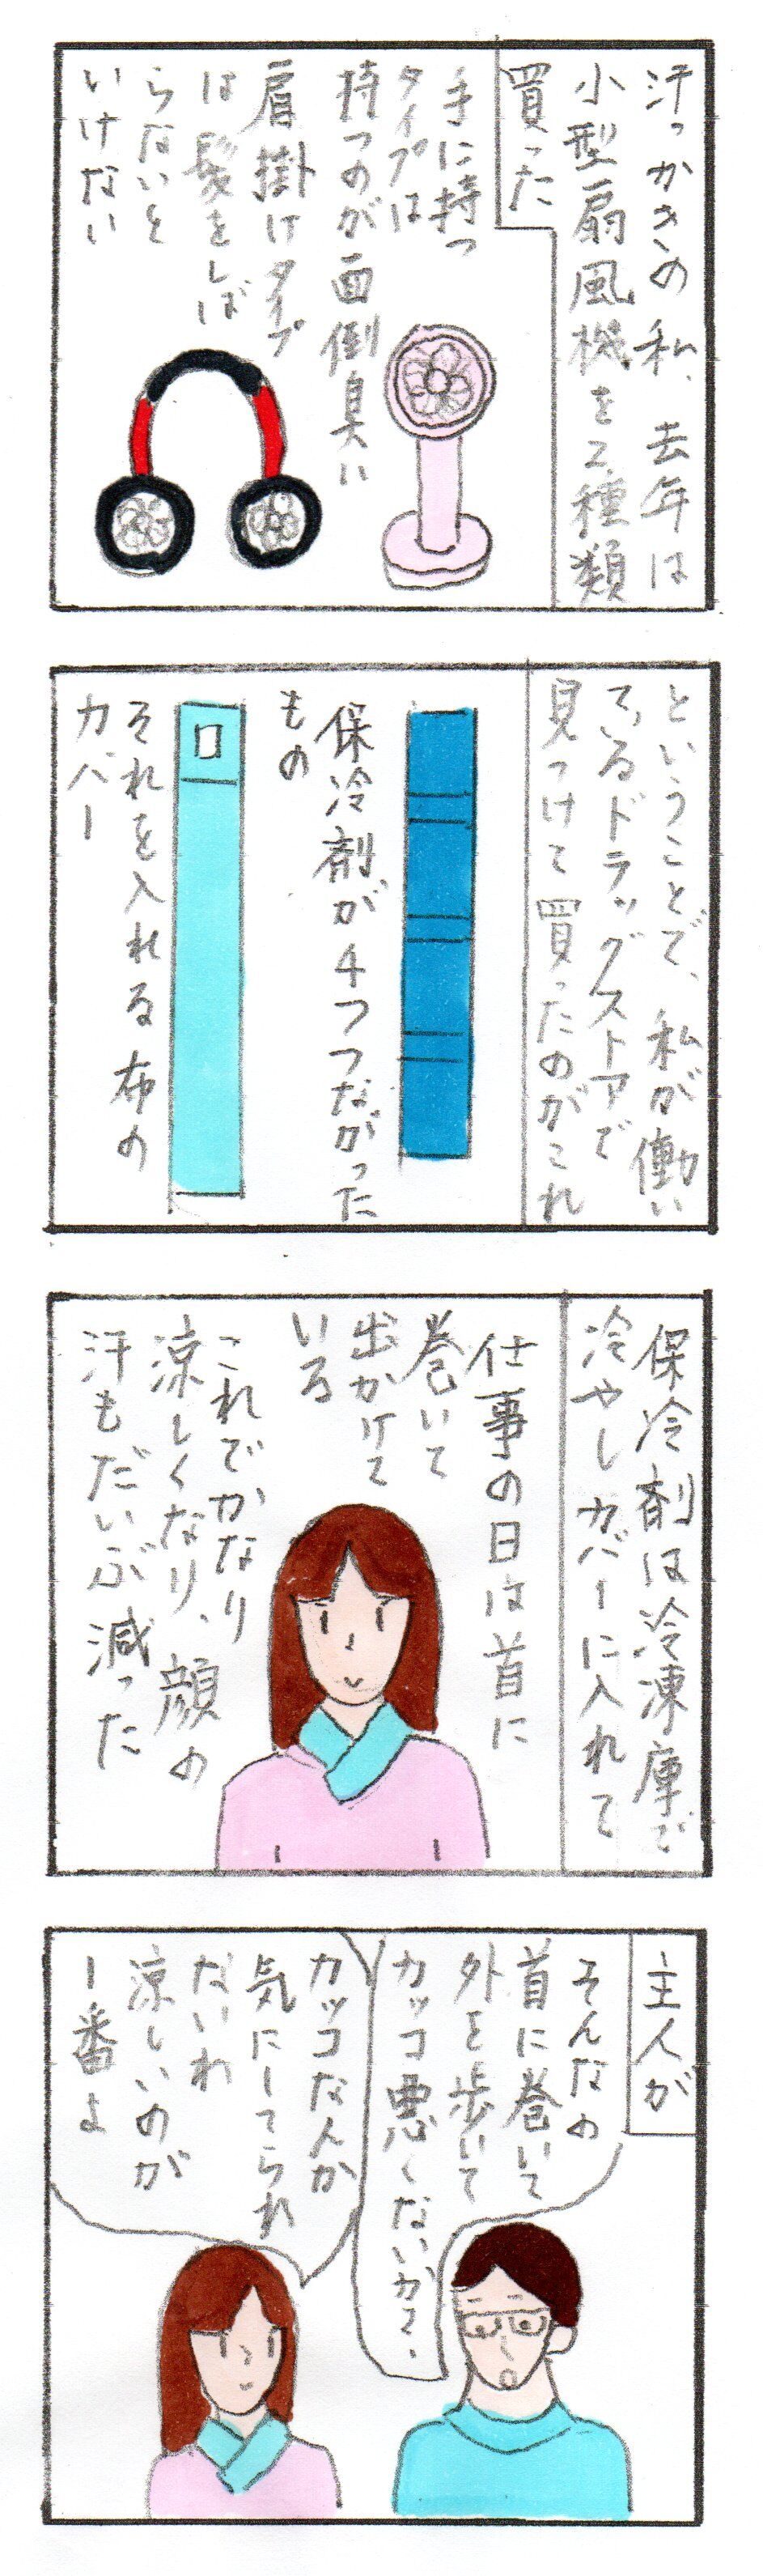 汗っかきの私、去年は
小型扇風機を2種類
買った
手に持つ
タイプは
持つのが面倒臭い
肩掛けタイプ
は髪をしば
らないと
いけない
ということで、私が働い
ているドラッグストアで
見つけて買ったのがこれ
保冷剤が4つつながった
もの
それを入れる布の
カバー
保冷剤は冷凍庫で
冷やしカバーに入れて
仕事の日は首に
巻いて
出かけて
いる
これでかなり
涼しくなり、顔の
汗もだいぶ減った
主人が
そんなの
首に巻いて
外を歩いて
カッコ悪くないかて、
カッコなんか
気にしてられ
ないわ
涼しいのが
1番よ